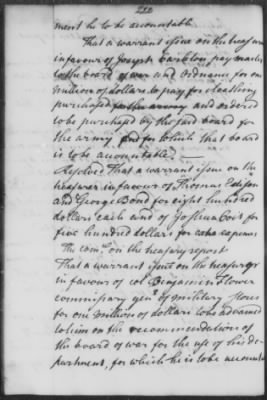 222
ment he to be accountable
That a warrant issue on the treasurer
in favour of Joseph Carleton, pay master
to the board of war and Ordnance for one
million of dollars to pay for cloathing
purchased for the army and ordered
to be purchased by the said board for
the army and for which that board
is to be accountable. —
Resolved That a warrant issue on the
treasurer in favour of Thomas Edison
and George Bond for eight hundred
dollars each and of Joshua Coit for
five hundred dollars for extra expences
The comee. on the treasury report
That a warrant issue on the treasurer
in favour of col Benjamin Flower
commissary genl of military stores
for one million of dollars to be advanced
to him on the recommendation of
the board of war for the use of his de-
partment, for which he is to be accounta